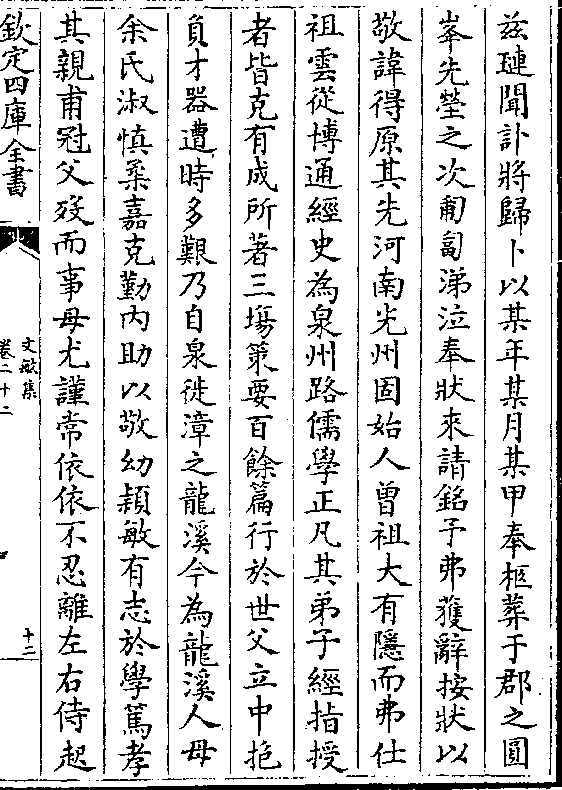 兹璉聞訃將歸卜以某年某月某甲奉柩葬于郡之圓
峯先塋之次匍匐涕泣奉狀來請銘予弗獲辭按狀以
敬諱得原其先河南光州固始人曾祖大有隱而弗仕
祖雲從博通經史為泉州路儒學正凡其弟子經指授
者皆克有成所著三塲策要百餘篇行於世父立中抱
負才器遭時多艱乃自泉徙漳之龍溪今為龍溪人母
余氏淑慎柔嘉克勤内助以敬幼穎敏有志於學篤孝
其親甫冠父殁而事母尤謹常依依不忍離左右侍起
欽定四庫全書
文敏集
卷二十二
十二